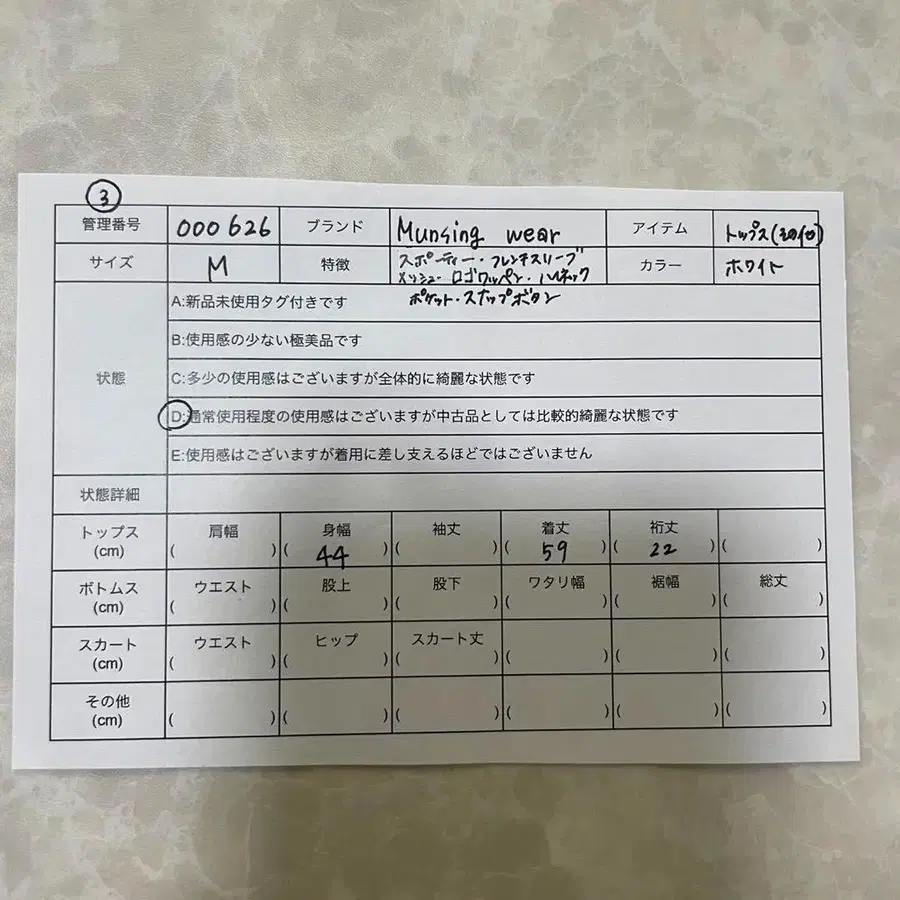 ③
管理番号 000626 ブランド Munsing wear アイテム トップス(その他)
サイズ M 特徴 スポーティー・フレンチスリーブ カラー ホワイト
メッシュ・ロゴワッペン・ハイネック
ポケット・スナップボタン
状態
A:新品未使用タグ付きです
B:使用感の少ない極美品です
C:多少の使用感はございますが全体的に綺麗な状態です
D:通常使用程度の使用感はございますが中古品としては比較的綺麗な状態です
E:使用感はございますが着用に差し支えるほどではございません
状態詳細
トップス 肩幅 身幅 袖丈 着丈 裄丈
(cm) ( ) ( 44 ) ( ) ( 59 ) ( 22 ) ( )
ボトムス ウエスト 股上 股下 ワタリ幅 裾幅 総丈
(cm) ( ) ( ) ( ) ( ) ( ) ( )
スカート ウエスト ヒップ スカート丈
(cm) ( ) ( ) ( ) ( ) ( ) ( )
その他
(cm) ( ) ( ) ( ) ( ) ( ) ( )